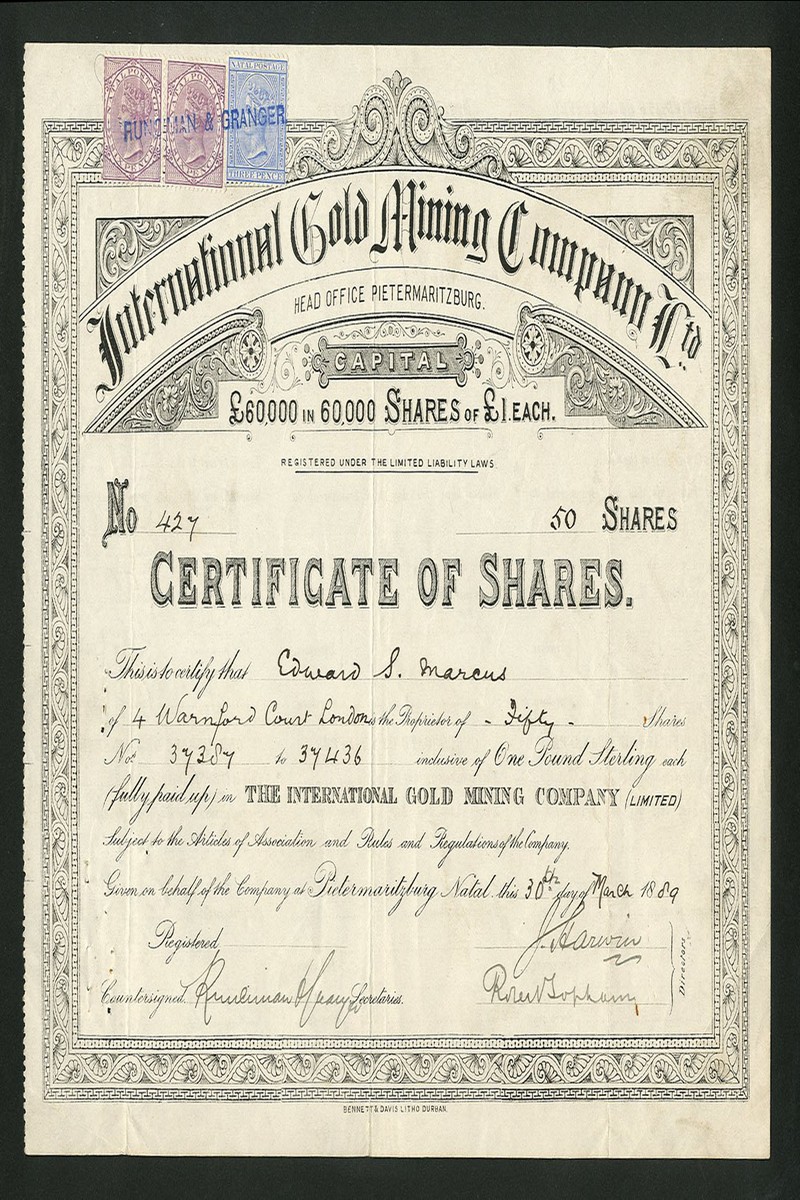 NATAL POSTAGE
THREE PENCE
RUNCIMAN & GRANGER
International Gold Mining Company Ltd.
HEAD OFFICE PIETERMARITZBURG.
CAPITAL
£60,000 IN 60,000 SHARES OF £1. EACH.
REGISTERED UNDER THE LIMITED LIABILITY LAWS
No 427 50 SHARES
CERTIFICATE OF SHARES.
This is to certify that Edward S. Marcus
of 4 Warnford Court London is the Proprietor of - Fifty - Shares
Nos 37387 to 37436 inclusive of One Pound Sterling each
(fully paid up) in THE INTERNATIONAL GOLD MINING COMPANY (LIMITED)
Subject to the Articles of Association and Rules and Regulations of the Company.
Given on behalf of the Company at Pietermaritzburg Natal this 30th day of March 1889
Registered J. Harwin
Countersigned Secretaries. Robert Topham
Directors
BENNETT & DAVIS LITHO DURBAN.